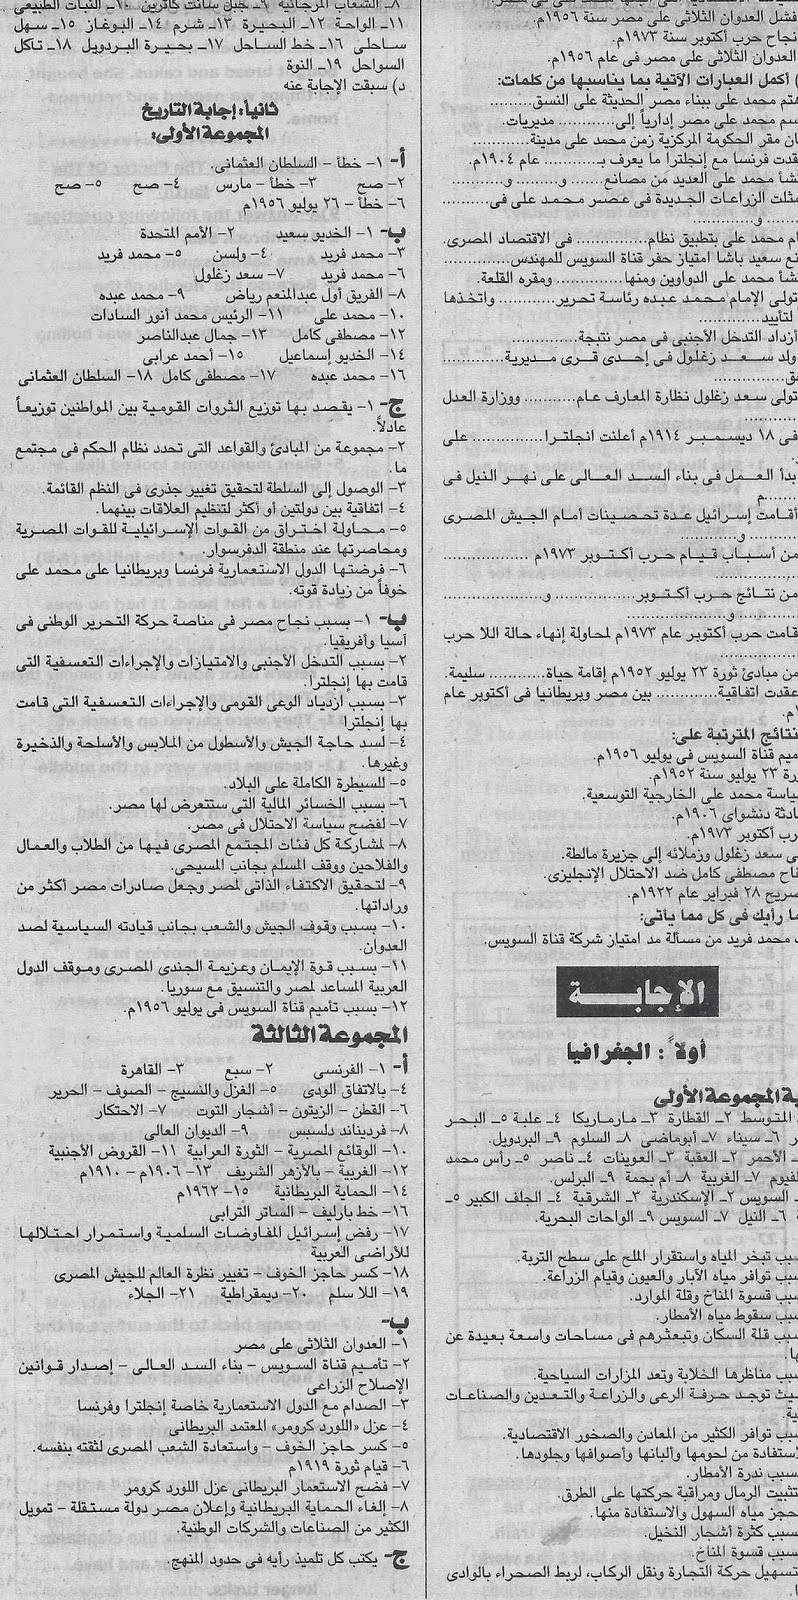 فشل العدوان الثلاثى على مصر سنة ١٩٥٦م.
نجاح حرب أكتوبر سنة ١٩٧٣م.
العدوان الثلاثى على مصر فى عام ١٩٥٦م.
) أكمل العبارات الآتية بما يناسبها من كلمات:
هتم محمد على ببناء مصر الحديثة على النسق..........
سم محمد على مصر إدارياً إلى.......... مديريات.
ان مقر الحكومة المركزية زمن محمد على مدينة..........
قدت فرنسا مع إنجلترا ما يعرف بـ.......... عام ١٩٠٤م.
نشأ محمد على العديد من مصانع....... و.......... و..........
مثلت الزراعات الجديدة فى عصر محمد على فى..........
.......... و..........
ام محمد على بتطبيق نظام.......... فى الاقتصاد المصرى.
نع سعيد باشا امتياز حفر قناة السويس للمهندس..........
نشأ محمد على الدواوين ومنها.......... ومقره القلعة.
تولى الإمام محمد عبده رئاسة تحرير.......... واتخذها
لتأييد..........
أزداد التدخل الأجنبى فى مصر نتيجة..........
ولد سعد زغلول فى إحدى قرى مديرية..........
ق..........
تولى سعد زغلول نظارة المعارف عام.......... ووزارة العدل
فى ١٨ ديسمبر ١٩١٤م أعلنت انجلترا.......... على
بدأ العمل فى بناء السد العالى على نهر النيل فى
..........م
أقامت إسرائيل عدة تحصينات أمام الجيش المصرى
.......... و..........
من أسباب قيام حرب أكتوبر ١٩٧٣م ..........
من نتائج حرب أكتوبر.......... و..........
.......... و..........
قامت حرب أكتوبر عام ١٩٧٣م لمحاولة إنهاء حالة اللا حرب
من مبادئ ثورة ٢٣ يوليو ١٩٥٢م إقامة حياة.......... سليمة.
عقدت اتفاقية.......... بين مصر وبريطانيا فى أكتوبر عام
م.
نتائج المترتبة على:
ميم قناة السويس فى يوليو ١٩٥٦م.
رة ٢٣ يوليو سنة ١٩٥٢م.
ياسة محمد على الخارجية التوسعية.
ادثة دنشواى ١٩٠٦م.
رب أكتوبر ١٩٧٣م.
ى سعد زغلول وزملائه إلى جزيرة مالطة.
اح مصطفى كامل ضد الاحتلال الإنجليزى.
صريح ٢٨ فبراير عام ١٩٢٢م.
ما رأيك فى كل مما يأتى:
ف محمد فريد من مسألة مد امتياز شركة قناة السويس.
الإجابة
أولاً : الجغرافيا
بة المجموعة الأولى
المتوسط ٢- القطارة ٣- مارماريكا ٤- علبة ٥- البحر
ر ٦- سيناء ٧- أبوماضى ٨- السلوم ٩- البردويل.
- الأحمر ٢- العقبة ٣- العوينات ٤- ناصر ٥- رأس محمد
لفيوم ٧- الغربية ٨- أم بجمة ٩- البرلس.
- السويس ٢- الإسكندرية ٣- الشرقية ٤- الجلف الكبير ٥-
ة ٦- النيل ٧- السويس ٩- الواحات البحرية.
سبب تبخر المياه واستقرار الملح على سطح التربة.
سبب توافر مياه الآبار والعيون وقيام الزراعة.
سبب قسوة المناخ وقلة الموارد.
سبب سقوط مياه الأمطار.
سبب قلة السكان وتبعثرهم فى مساحات واسعة بعيدة عن
ها.
سبب مناظرها الخلابة وتعد المزارات السياحية.
يث توجد حرفة الرعى والزراعة والتعدين والصناعات
ية.
سبب توافر الكثير من المعادن والصخور الاقتصادية.
لاستفادة من لحومها وألبانها وأصوافها وجلودها.
سبب ندرة الأمطار.
تثبيت الرمال ومراقبة حركتها على الطرق.
حجز مياه السهول والاستفادة منها.
سبب كثرة أشجار النخيل.
سبب قسوة المناخ.
تسهيل حركة التجارة ونقل الركاب، لربط الصحراء بالوادى
٨- الشعاب المرجانية ٩- جبل سانت كاترين ١٠- النبات الطبيعى
١١- الواحة ١٢- البحيرة ١٣- شرم ١٤- البوغاز ١٥- سهل
ساحلى ١٦- خط الساحل ١٧- بحيرة البردويل ١٨- تآكل
السواحل ١٩- النوة
د) سبقت الإجابة عنه
ثانياً: إجابة التاريخ
المجموعة الأولى:
أ- ١- خطأ - السلطان العثمانى.
٢- صح ٣- خطأ - مارس ٤- صح ٥- صح
٦- خطأ - ٢٦ يوليو ١٩٥٦م
ب- ١- الخديو سعيد ٢- الأمم المتحدة
٣- محمد فريد ٤- ولسن ٥- محمد فريد
٦- محمد فريد ٧- سعد زغلول
٨- الفريق أول عبدالمنعم رياض ٩- محمد عبده
١٠- محمد على ١١- الرئيس محمد أنور السادات
١٢- مصطفى كامل ١٣- جمال عبدالناصر
١٤- الخديو إسماعيل ١٥- أحمد عرابى
١٦- محمد عبده ١٧- مصطفى كامل ١٨- السلطان العثمانى
ج- ١- يقصد بها توزيع الثروات القومية بين المواطنين توزيعاً
عادلاً.
٢- مجموعة من المبادئ والقواعد التى تحدد نظام الحكم فى مجتمع
ما.
٣- الوصول إلى السلطة لتحقيق تغيير جذرى فى النظم القائمة.
٤- اتفاقية بين دولتين أو أكثر لتنظيم العلاقات بينهما.
٥- محاولة اختراق من القوات الإسرائيلية للقوات المصرية
ومحاصرتها عند منطقة الدفرسوار.
٦- فرضتها الدول الاستعمارية فرنسا وبريطانيا على محمد على
خوفاً من زيادة قوته.
ب- ١- بسبب نجاح مصر فى مناصة حركة التحرير الوطنى فى
آسيا وأفريقيا.
٢- بسبب التدخل الأجنبى والامتيازات والإجراءات التعسفية التى
قامت بها إنجلترا.
٣- بسبب ازدياد الوعى القومى والإجراءات التعسفية التى قامت
بها إنجلترا
٤- لسد حاجة الجيش والأسطول من الملابس والأسلحة والذخيرة
وغيرها.
٥- للسيطرة الكاملة على البلاد.
٦- بسبب الخسائر المالية التى ستتعرض لها مصر.
٧- لفضح سياسة الاحتلال فى مصر.
٨- لمشاركة كل فئات المجتمع المصرى فيها من الطلاب والعمال
والفلاحين ووقف المسلم بجانب المسيحى.
٩- لتحقيق الاكتفاء الذاتى لمصر وجعل صادرات مصر أكثر من
وراداتها.
١٠- بسبب وقوف الجيش والشعب بجانب قيادته السياسية لصد
العدوان.
١١- بسبب قوة الإيمان وعزيمة الجندى المصرى وموقف الدول
العربية المساعد لمصر والتنسيق مع سوريا.
١٢- بسبب تأميم قناة السويس فى يوليو ١٩٥٦م.
المجموعة الثالثة
أ- ١- الفرنسى ٢- سبع ٣- القاهرة
٤- بالاتفاق الودى ٥- الغزل والنسيج - الصوف - الحرير
٦- القطن - الزيتون - أشجار التوت ٧- الاحتكار
٨- فرديناند دلسبس ٩- الديوان العالى
١٠- الوقائع المصرية - الثورة العرابية ١١- القروض الأجنبية
١٢- الغربية - بالأزهر الشريف ١٣- ١٩٠٦م - ١٩١٠م
١٤- الحماية البريطانية ١٥- ١٩٦٢م
١٦- خط بارليف - الساتر الترابى
١٧- رفض إسرائيل المفاوضات السلمية واستمرار احتلالها
للأراضى العربية
١٨- كسر حاجز الخوف - تغيير نظرة العالم للجيش المصرى
١٩- اللا سلم ٢٠- ديمقراطية ٢١- الجلاء
ب-
١- العدوان الثلاثى على مصر
٢- تأميم قناة السويس - بناء السد العالى - إصدار قوانين
الإصلاح الزراعى
٣- الصدام مع الدول الاستعمارية خاصة إنجلترا وفرنسا
٤- عزل «اللورد كرومر» المعتمد البريطانى
٥- كسر حاجز الخوف - واستعادة الشعب المصرى لثقته بنفسه.
٦- قيام ثورة ١٩١٩م
٧- فضح الاستعمار البريطانى عزل اللورد كرومر
٨- إلغاء الحماية البريطانية وإعلان مصر دولة مستقلة - تمويل
الكثير من الصناعات والشركات الوطنية.
ج- يكتب كل تلميذ رأيه فى حدود المنهج.